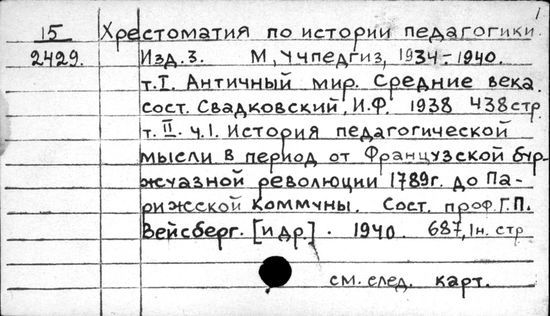 1
15 Хрестоматия по истории педагогики.
2429. Изд. 3. М, Учпедгиз, 1934-1940.
т. I. Античный мир. Средние века.
сост. Свадковский, И.Ф. 1938 438 стр
т. II. ч. 1. История педагогической
мысли в период от Французской бур-
жуазной революции 1789г. до Па-
рижсской Коммуны. Сост. проф. Г.П.
Вейсберг. [и др.]. 1940. 687, 1н. стр
см. след. карт.